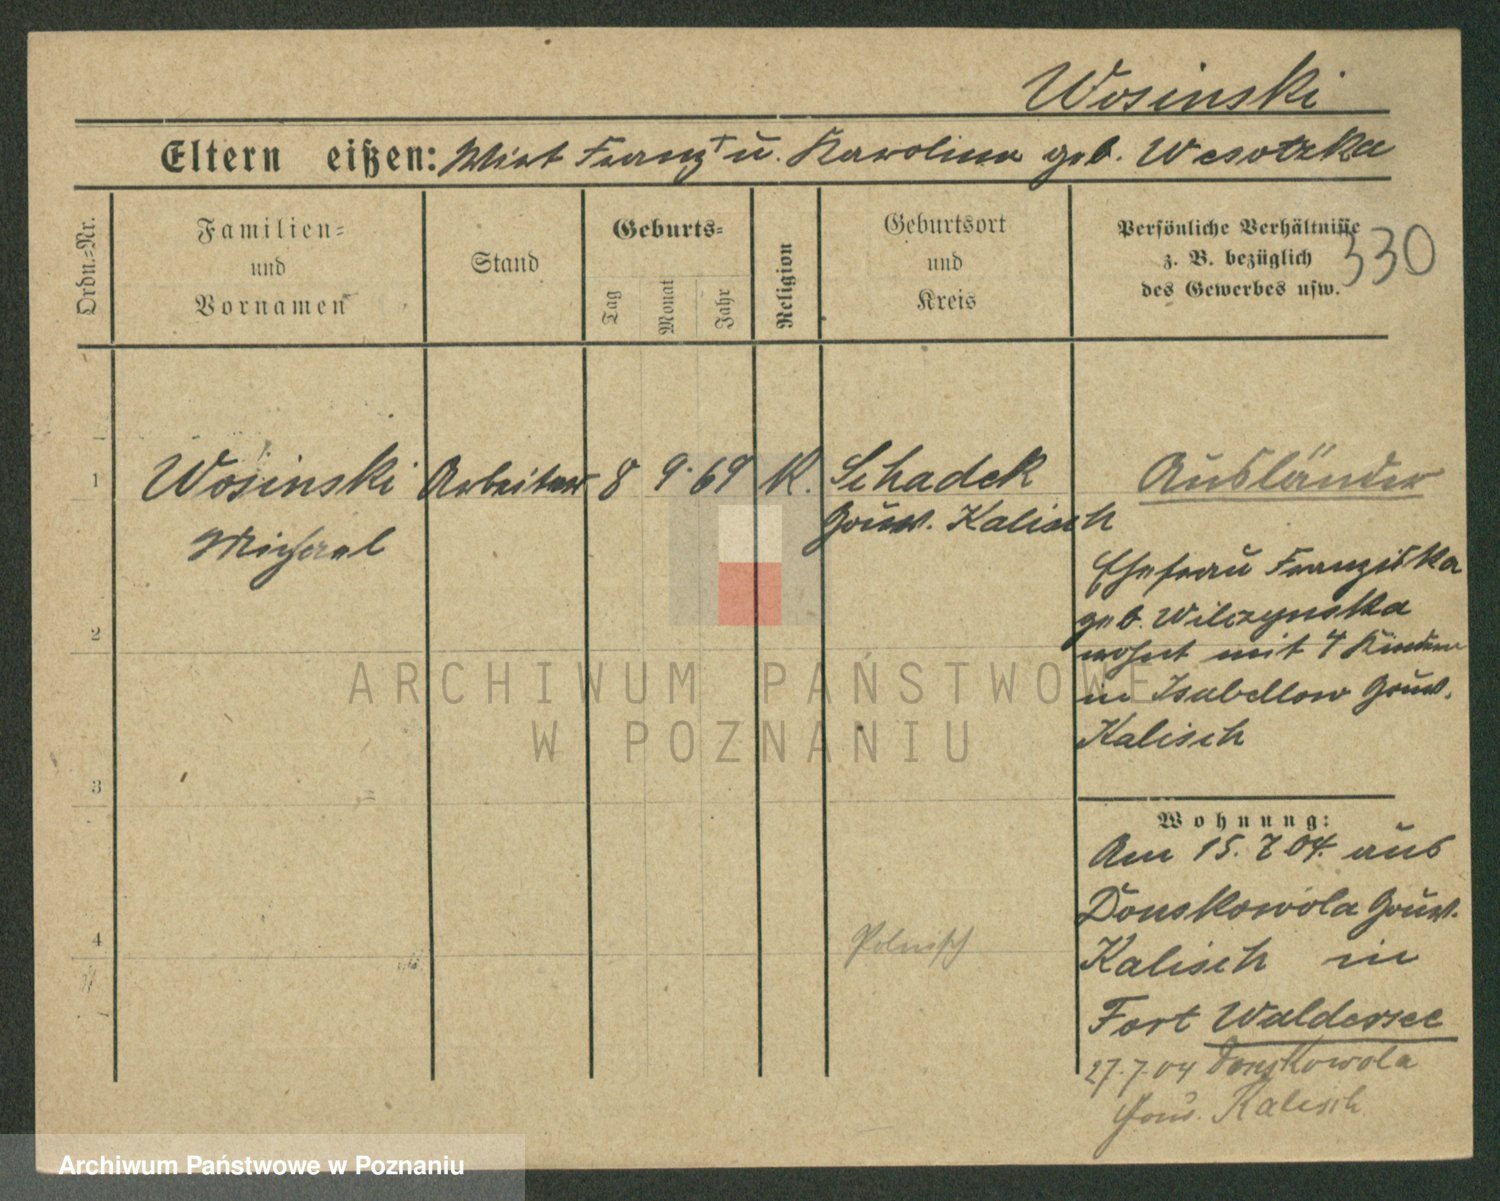 Wosinski
Eltern eißen: Wirt Franz † u. Karolina geb. Wesotzka
Ordn.-Nr.
Familien-
und
Vornamen
Stand
Geburts-
Tag
Monat
Jahr
Religion
Geburtsort
und
Kreis
Persönliche Verhältnisse
z. B. bezüglich
des Gewerbes usw.
330
1
Wosinski Arbeiter 8 9. 69 K. Schadek
Michael
Gouv. Kalisch
Ausländer
Ehefrau Franziska
geb. Wilczynska
wohnt mit 4 Kindern
in Isabellow Gouv.
Kalisch
2
3
4
Polnisch
Wohnung:
Am 15. 7 04. aus
Donskowola Gouv.
Kalisch in
Fort Waldersee
27.7.04 Donskowola
Gouv. Kalisch
ARCHIWUM PAŃSTWOWE
W POZNANIU
Archiwum Państwowe w Poznaniu